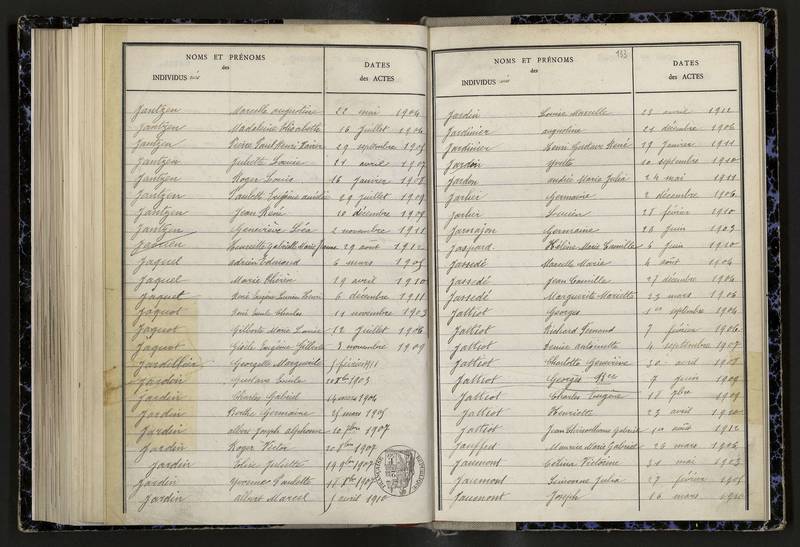 NOMS ET PRÉNOMS
des
INDIVIDUS
DATES
des ACTES
Jantzen Marcelle Augustine 22 mai 1904
Jantzen Madeleine Elisabeth 16 Juillet 1904
Jantzen Pierre Paul Henri 29 septembre 1905
Jantzen Juliette Louise 11 avril 1907
Jantzen Roger Louis 16 Janvier 1908
Jantzen Paulette Eugénie 29 Juillet 1909
Jantzen Jean René 10 décembre 1909
Jantzen Geneviève Léa 2 novembre 1911
Henriette Gabrielle Marie Jeanne 29 août 1912
Jaquel Adrien Edmond 6 mars 1905
Jaquel Marie 19 avril 1910
Jaquet René Eugène Lucien 6 décembre 1911
Jaquot René Emile Charles 11 novembre 1903
Jaquot Gilberte Marie Louise 12 Juillet 1906
Jaquot Gisèle Eugénie 3 novembre 1909
Georgette Marguerite 5 février
Jardin Gustave Emile 1903
Jardin Charles Gabriel 14 mars 1904
Jardin Berthe Germaine 25 mars 1905
Jardin Albert Joseph Alphonse 10 7bre 1907
Jardin Roger Victor 20 8bre 1907
Jardin Juliette 19 9bre 1907
Jardin Yvonne Paulette 1907
Jardin Albert Marcel 5 avril 1910
RÉPUBLIQUE FRANÇAISE
193
NOMS ET PRÉNOMS
des
INDIVIDUS
DATES
des ACTES
Jardin Louise Marcelle 23 avril 1912
Jardinier Augustine 21 décembre 1906
Jardinier Henri Gustave René 29 Janvier 1911
Jardon Yvette 10 septembre 1910
Jardon André Marie Julia 24 mai 1911
Jarlier Germaine 2 décembre 1906
Jarlier Lucien 25 février 1910
Germaine 26 Juin 1903
Jaspard Hélène Marie Camille 6 Juin 1910
Jassedé Marcelle Marie 4 août 1904
Jassedé Jean Camille 27 décembre 1904
Jassedé Marguerite Mariette 23 mars 1906
Jattiot Georges 1er septembre 1904
Jattiot Richard Fernand 7 février 1906
Jattiot Denise Antoinette 4 septembre 1907
Jattiot Charlotte Geneviève 30 avril 1908
Jattiot Georges 7 Juin 1909
Jattiot Charles Eugène 18 9bre 1909
Jattiot Henriette 29 avril 1910
Jattiot Jean Gabriel 1er août 1912
Jauffred Maurice Marie Gabriel 26 mars 1906
Jaumont Victorine 31 mai 1903
Jaumont Simonne Julia 27 février 1905
Jaumont Joseph 16 mars 1910